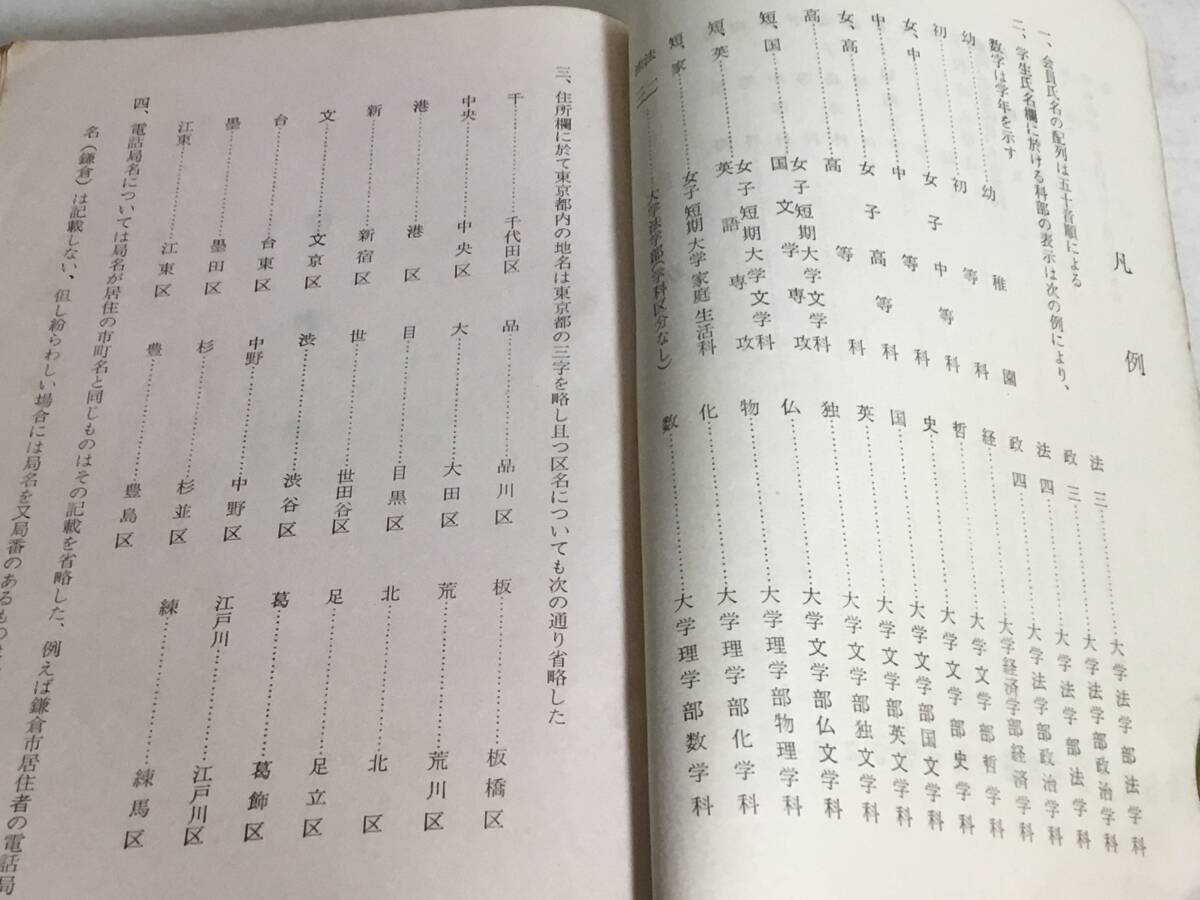 凡例
一、会員氏名の配列は五十音順による
二、学生氏名欄に於ける科部の表示は次の例により、
数字は学年を示す
幼……幼稚園
初……初等科
女、中……女子中等科
中……中等科
女、高……女子高等科
高……高等科
短、国……女子短期大学文学科国文学専攻
短、英……女子短期大学文学科英語専攻
短、家……女子短期大学家庭生活科
大学法学部(学科区分なし)
法三……大学法学部法学科
政三……大学法学部政治学科
法四……大学法学部法学科
政四……大学法学部政治学科
経……大学経済学部経済学科
哲……大学文学部哲学科
史……大学文学部史学科
国……大学文学部国文学科
英……大学文学部英文学科
独……大学文学部独文学科
仏……大学文学部仏文学科
物……大学理学部物理学科
化……大学理学部化学科
数……大学理学部数学科
三、住所欄に於て東京都内の地名は東京都の三字を略し且つ区名についても次の通り省略した
千……千代田区
中央……中央区
港……港区
新……新宿区
文……文京区
台……台東区
墨……墨田区
江東……江東区
品……品川区
大……大田区
目……目黒区
世……世田谷区
渋……渋谷区
中野……中野区
杉……杉並区
豊……豊島区
板……板橋区
荒……荒川区
北……北区
足……足立区
葛……葛飾区
江戸川……江戸川区
練……練馬区
四、電話局名については局名が居住の市町名と同じものはその記載を省略した、例えば鎌倉市居住者の電話局
名(鎌倉)は記載しない、但し紛らわしい場合には局名を又局番のあるもの